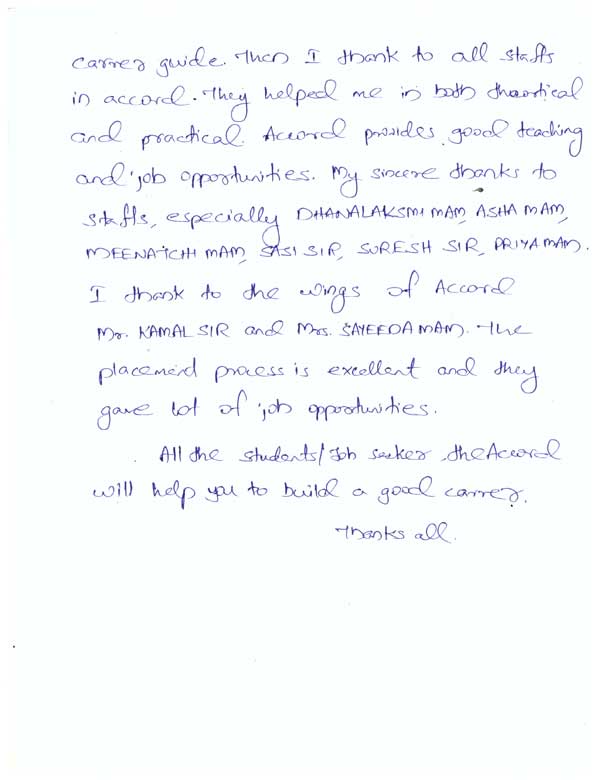 carrer guide. Then I thank to all staffs
in accord. They helped me in both theortical
and practical. Accord provides good teaching
and job opportunities. My sincere thanks to
staffs, especially DHANALAKSMI MAM, ASHA MAM,
MEENATCHI MAM, SASI SIR, SURESH SIR, PRIYA MAM.
I thank to the wings of Accord
Mr. KAMAL SIR and Mrs. SAYEEDA MAM. The
placement process is excellent and they
gave lot of job opportunities.
All the students/Job seeker, the Accord
will help you to build a good carrer.
Thanks all.